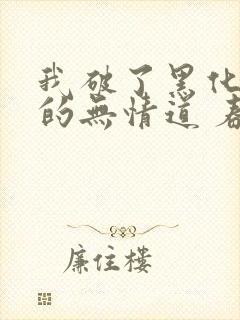 我破了黑化
的無情道 春
廉住樓